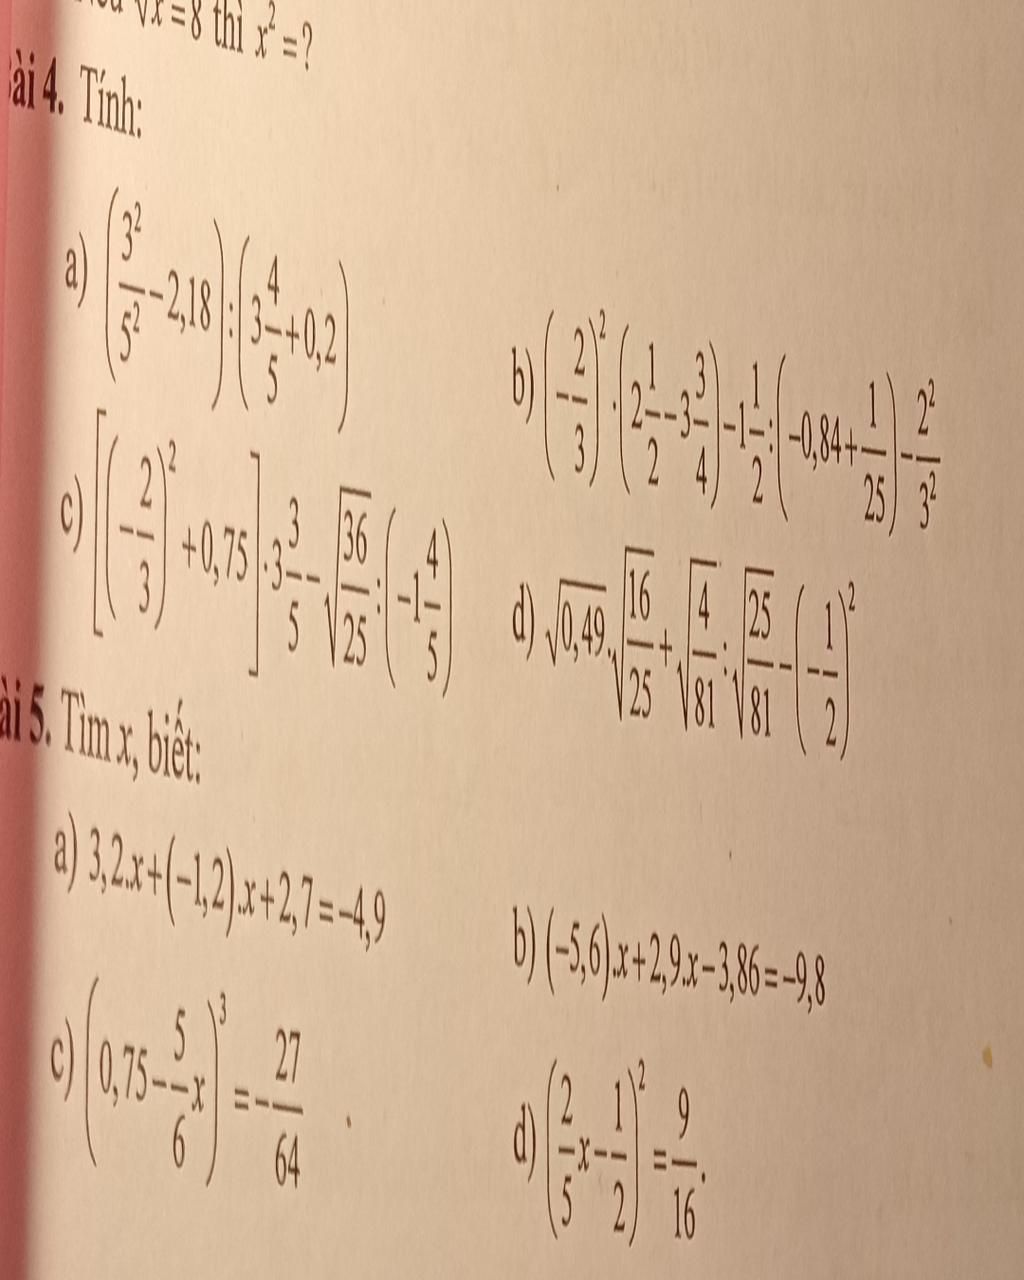 √x = 8 thì x² = ?
Bài 4. Tính:
a) (3²/5² − 2,18) : (3 4/5 + 0,2)
b) (−2/3)² · (2 1/2 − 3 3/4) − 1 1/2 : (−0,84 + 1/25) − 2²/3²
c) [(−2/3)² + 0,75] · 3 3/5 − √(36/25) : (−1 4/5)
d) √0,49 . √(16/25) + √(4/81) : √(25/81) − (−1/2)²
Bài 5. Tìm x, biết:
a) 3,2.x + (−1,2).x + 2,7 = −4,9
b) (−5,6).x + 2,9.x − 3,86 = −9,8
c) (0,75 − 5/6 x)³ = −27/64
d) (2/5 x − 1/2)² = 9/16.